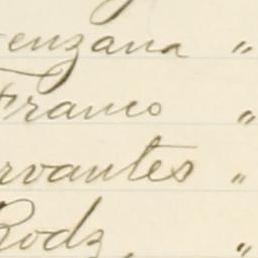 enzana "
Franco "
rvantes "
Rodz. "